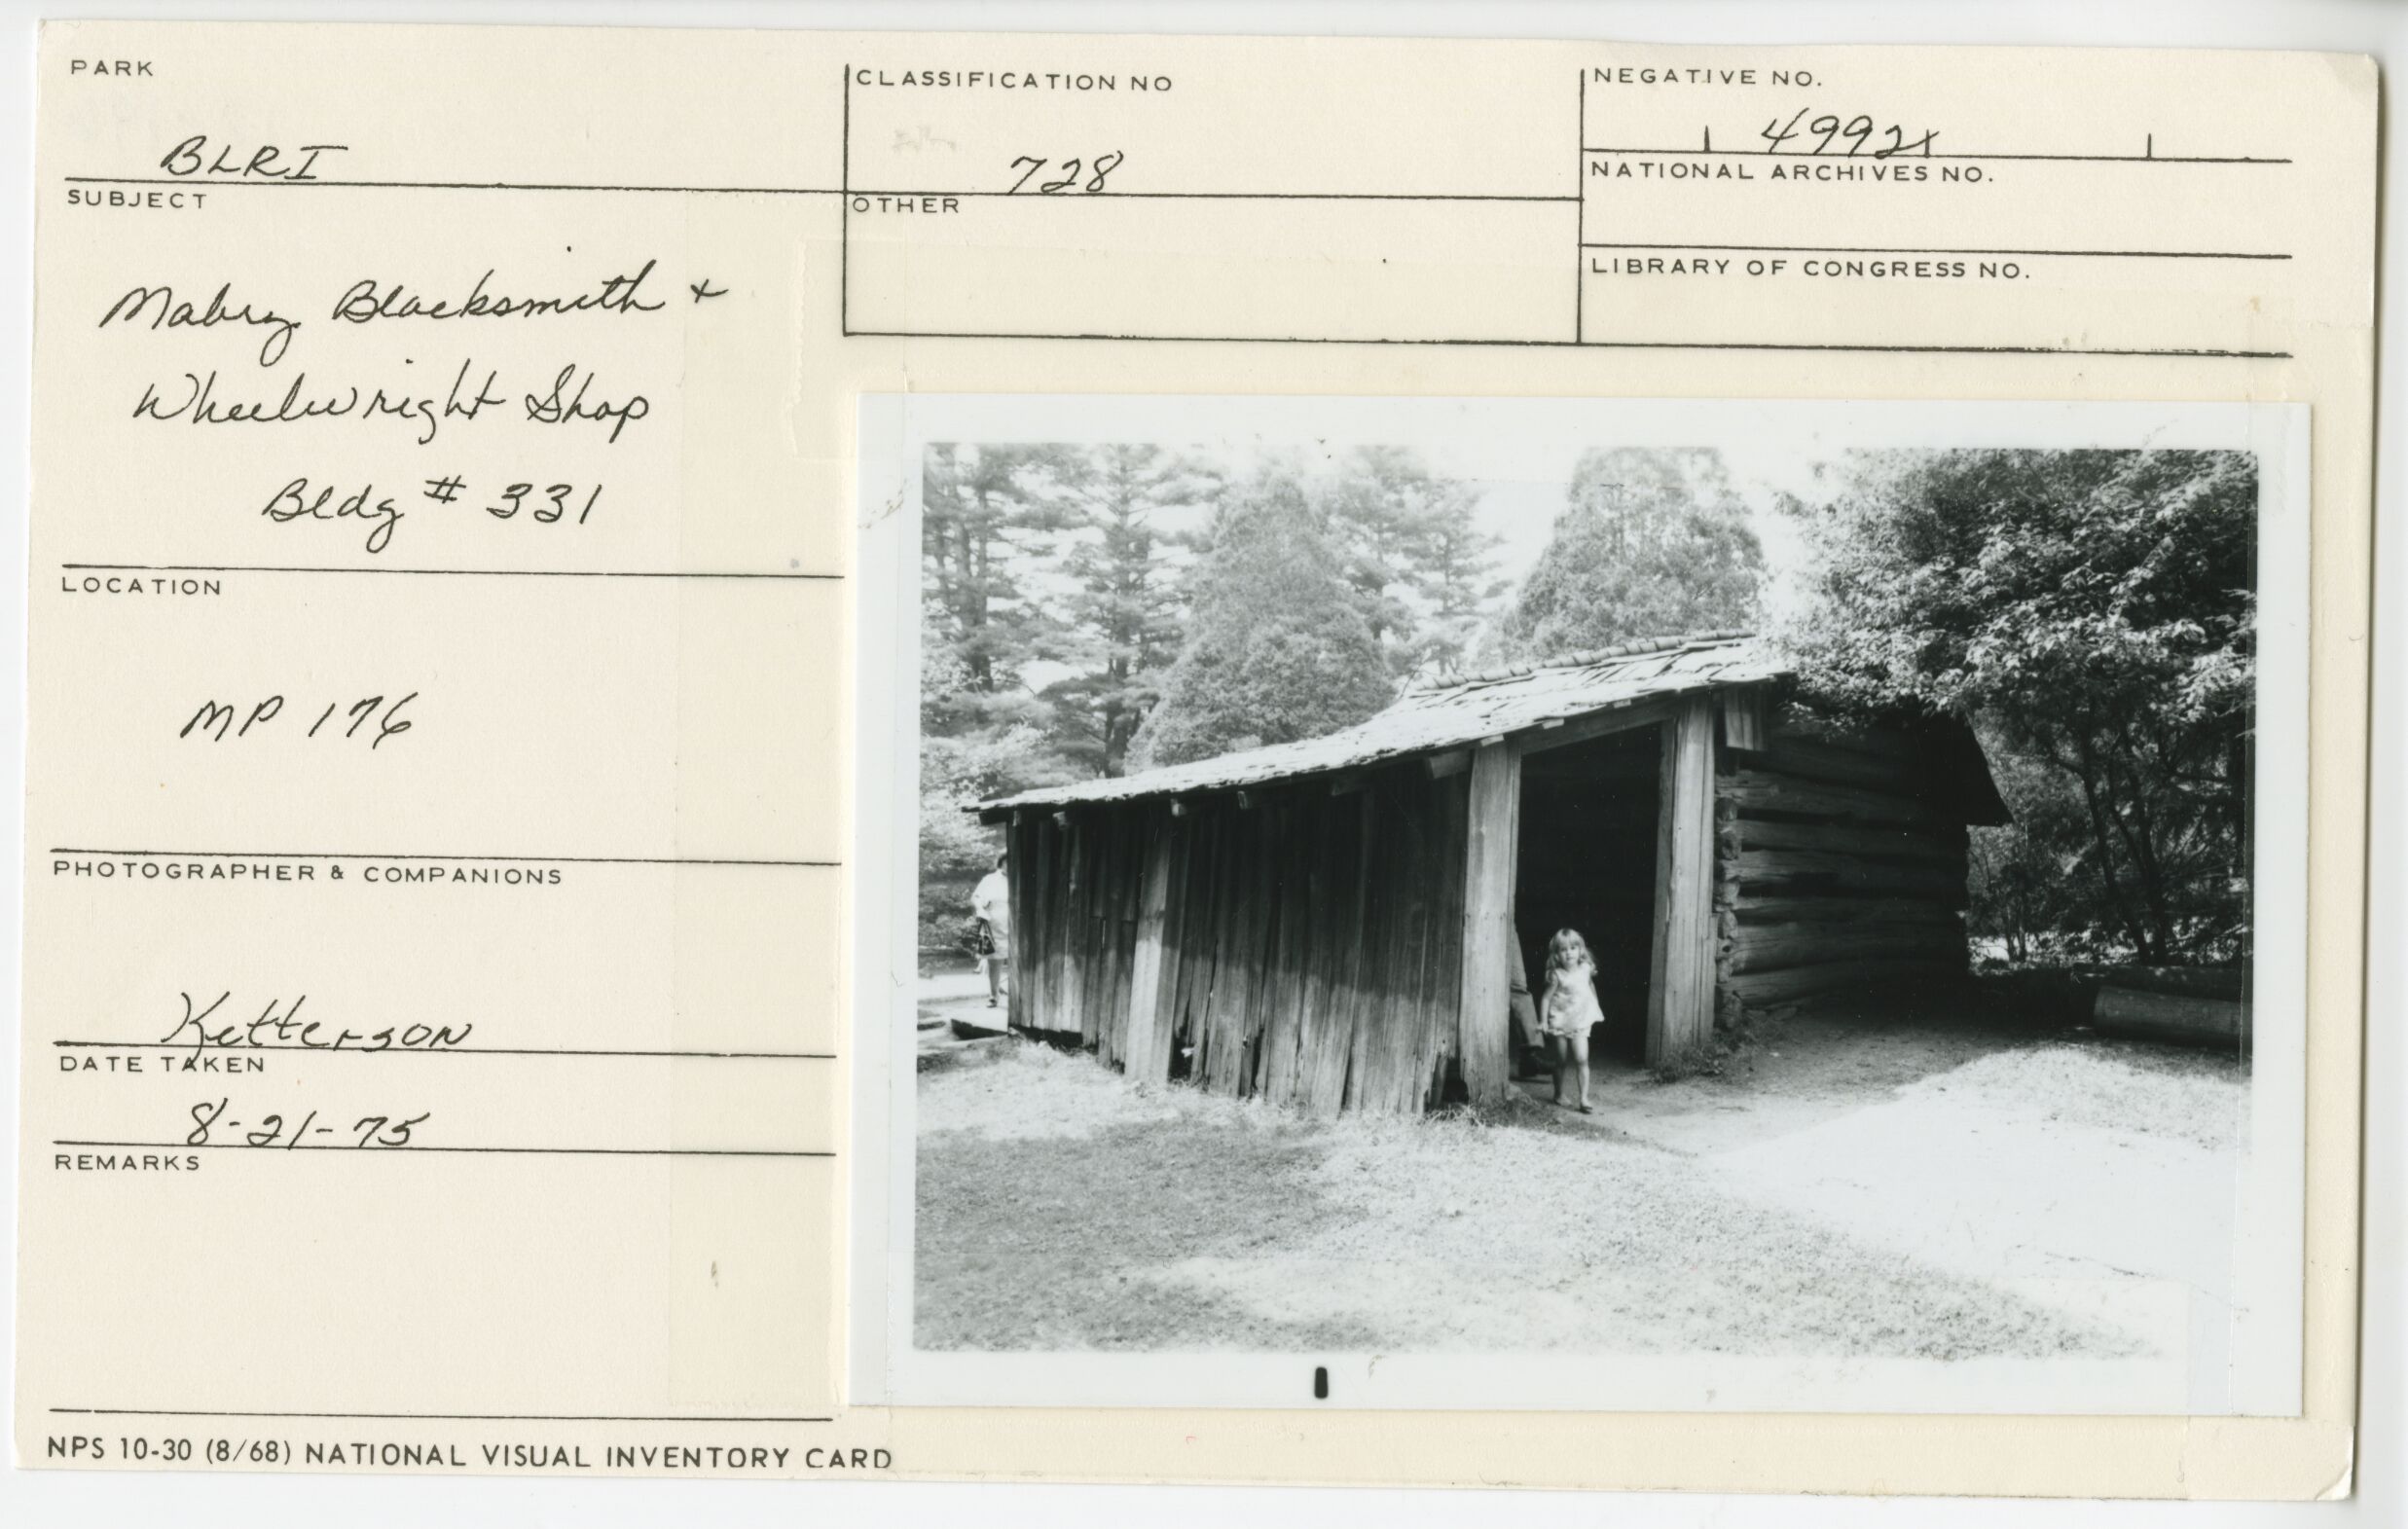 PARK
BLRI
CLASSIFICATION NO
728
NEGATIVE NO.
4992
NATIONAL ARCHIVES NO.
LIBRARY OF CONGRESS NO.
OTHER
SUBJECT
Mabry Blacksmith +
Wheelwright Shop
Bldg # 331
LOCATION
MP 176
PHOTOGRAPHER & COMPANIONS
Ketterson
DATE TAKEN
8-21-75
REMARKS
NPS 10-30 (8/68) NATIONAL VISUAL INVENTORY CARD